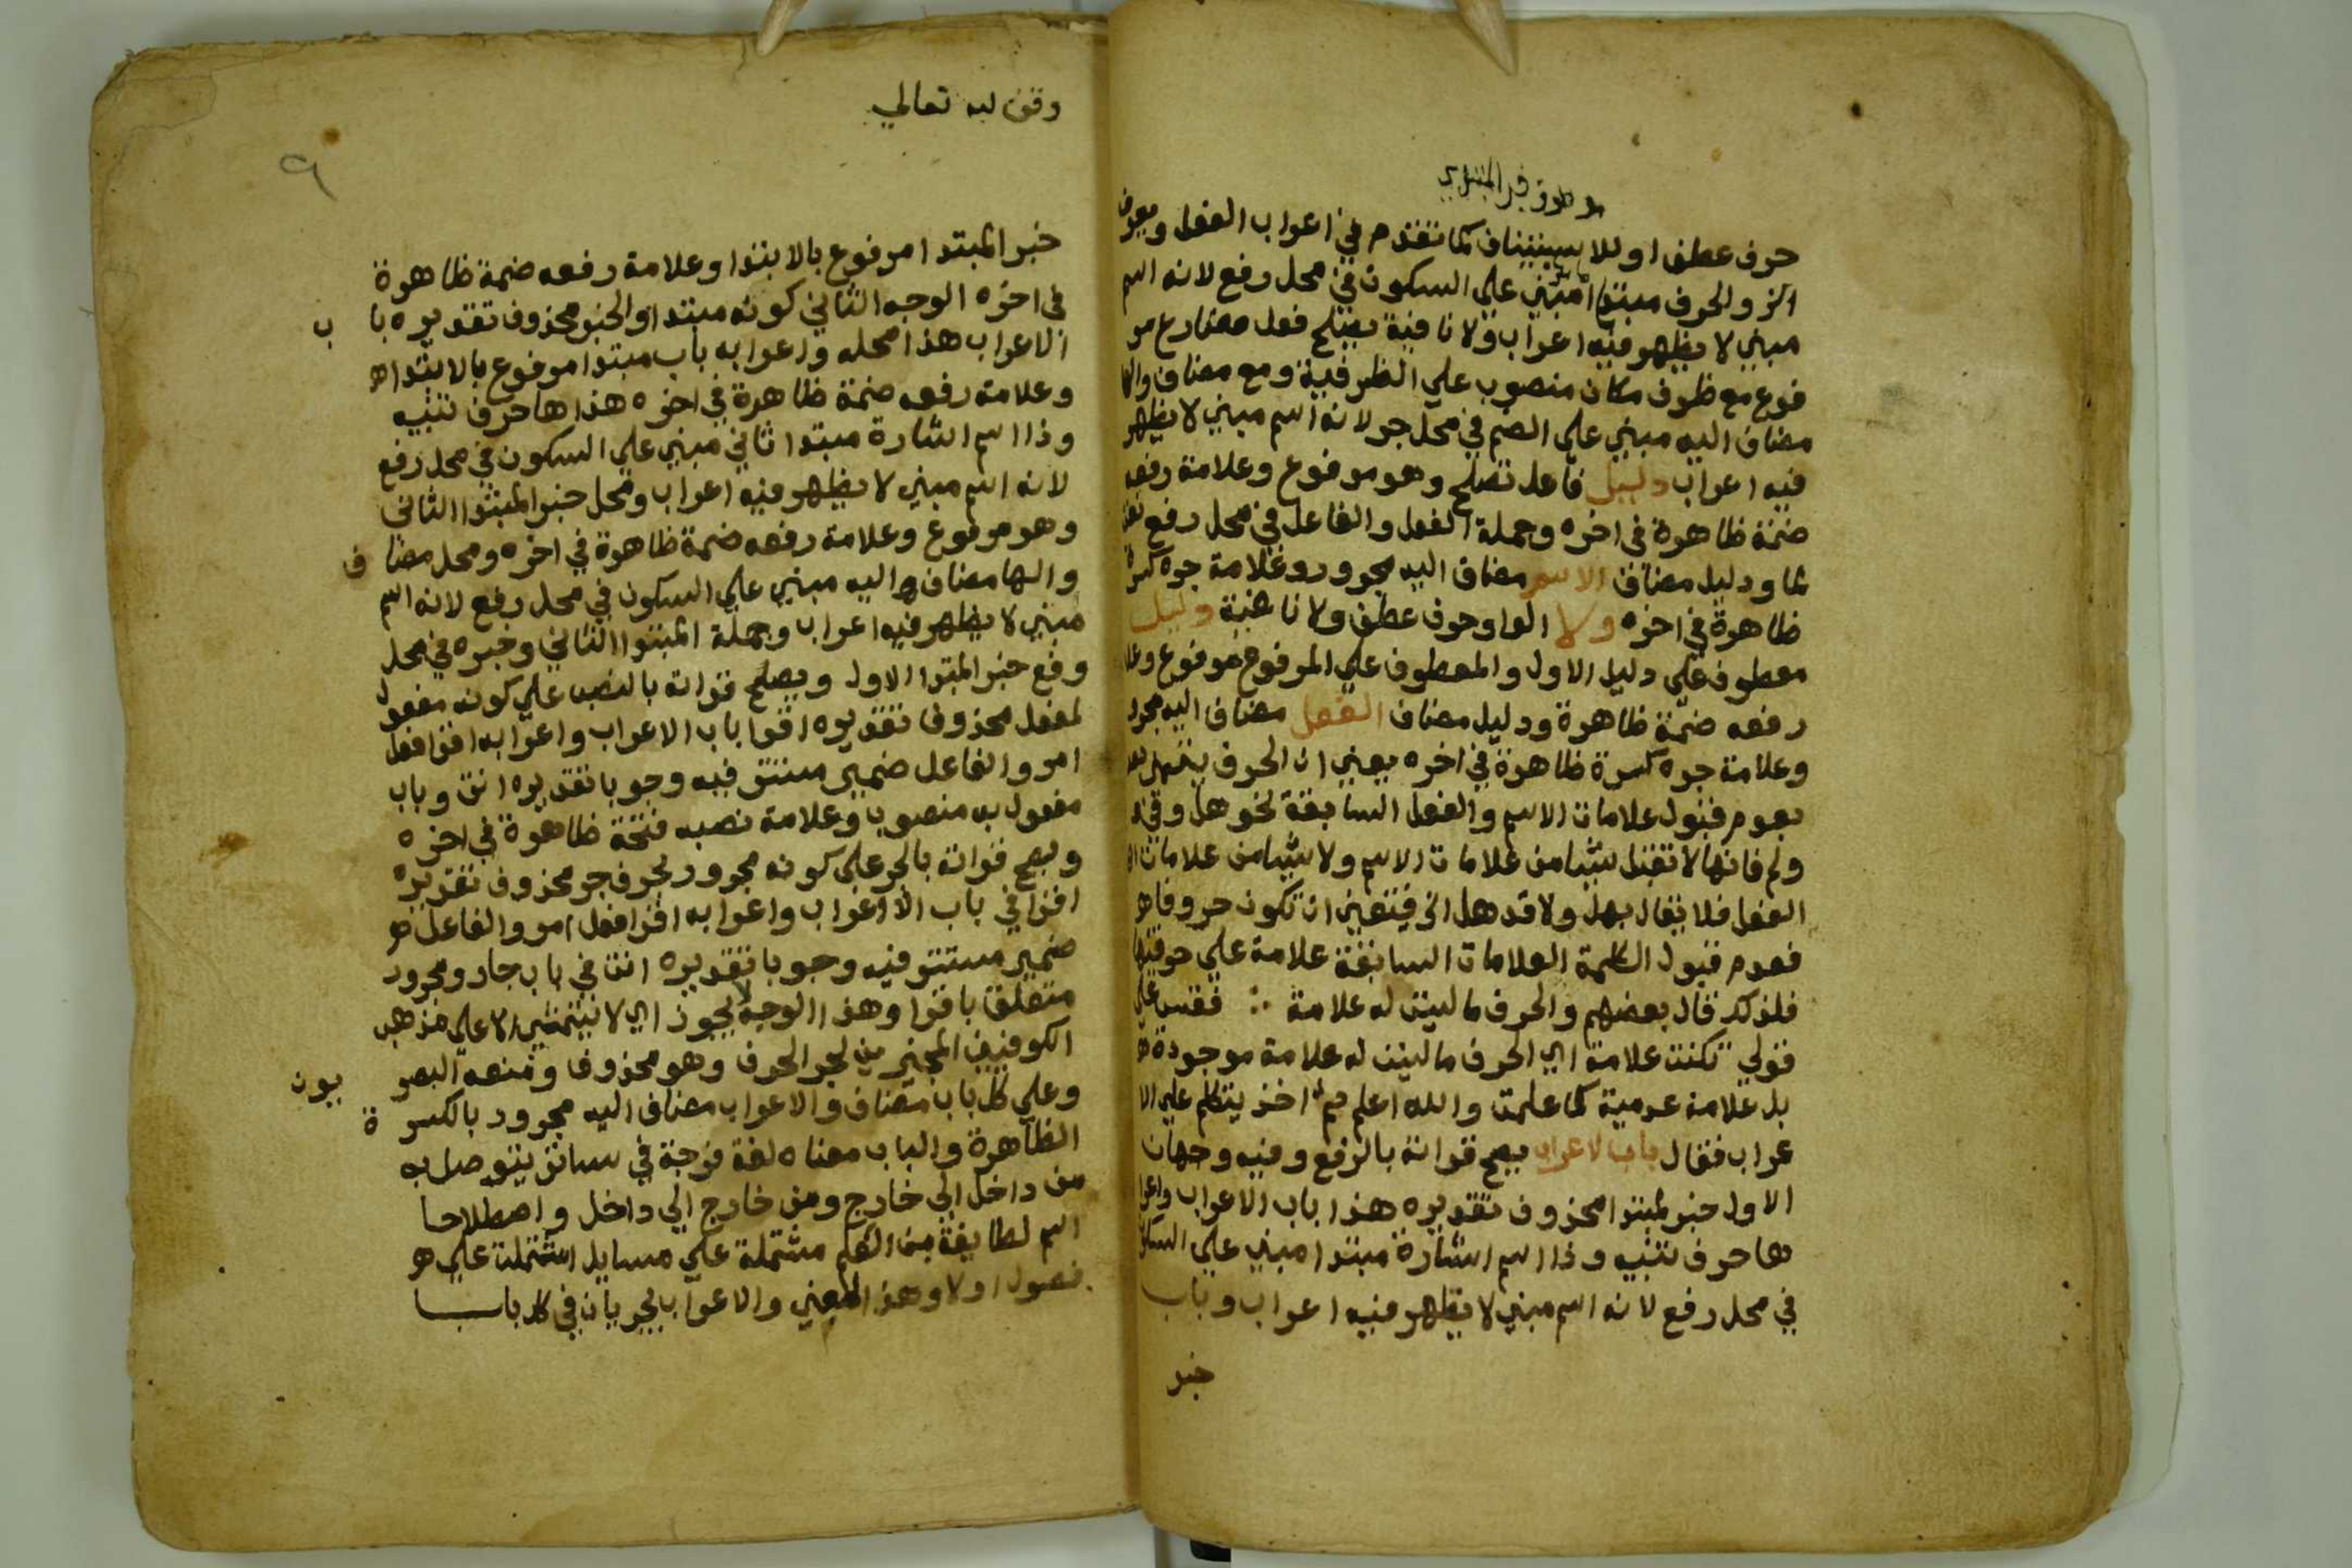 حرف عطف او للاستيناف كما تقدم في اعراب الفعل ويعرف
الخ والحرف مبتدا مبني علي السكون في محل رفع لانه اسم
مبني لا يظهر فيه اعراب ولا نافية يصلح فعل مضارع مر
فوع مع ظرف مكان منصوب علي الظرفية ومع مضاف والها
مضاف اليه مبني علي الضم في محل جر لانه اسم مبني لا يظهر
فيه اعراب دليل فاعل تصلح وهو مرفوع وعلامة رفعه
ضمة ظاهرة في اخره وجملة الفعل والفاعل في محل رفع
لما ودليل مضاف الاسم مضاف اليه مجرور وعلامة جره كسرة
ظاهرة في اخره ولا الواو حرف عطف ولا نافية دليل
معطوف علي دليل الاول والمعطوف علي المرفوع مرفوع وعلا
رفعه ضمة ظاهرة ودليل مضاف الفعل مضاف اليه مجرور
وعلامة جره كسرة ظاهرة في اخره يعني ان الحرف يتميز
بعدم قبول علامات الاسم والفعل السابقة نحو هل وفي
ولم فانها لا تقبل شيا من علامات الاسم ولا شيا من علامات
الفعل فلا يقال بهل ولا قد هل الخ فيتعين ان تكون حروفا هـ
فعدم قبول الكلمة العلامات السابقة علامة علي حرفيتها
فلذلك قال بعضهم والحرف ما ليست له علامة ∴ فقس علي
قولي تكنت علامة اي الحرف ما ليست له علامة موجودة
بل علامة عدمية كما علمت والله اعلم ثم اخذ يتكلم علي الا
عراب فقال باب الاعراب يصح قراته بالرفع وفيه وجهان
الاول خبر لمبتدا محذوف تقديره هذا باب الاعراب واعرا
ها حرف تنبيه وذا اسم اشارة مبتدا مبني علي السكون
في محل رفع لانه اسم مبني لا يظهر فيه اعراب وباب
خبر
وقف لله تعالي
٩
خبر المبتدا مرفوع بالابتدا وعلامة رفعه ضمة ظاهرة
في اخره الوجه الثاني كونه مبتدا والخبر محذوف تقديره با ب
الاعراب هذا محله واعرابه باب مبتدا مرفوع بالابتدا هـ
وعلامة رفعه ضمة ظاهرة في اخره هذا ها حرف تنبيه
وذا اسم اشارة مبتدا ثاني مبني علي السكون في محل رفع
لانه اسم مبني لا يظهر فيه اعراب ومحل خبر المبتدا الثاني
وهو مرفوع وعلامة رفعه ضمة ظاهرة في اخره ومحل مضا ف
والها مضاف اليه مبني علي السكون في محل رفع لانه اسم
مبني لا يظهر فيه اعراب وجملة المبتدا الثاني وخبره في محل
رفع خبر المبتدا الاول ويصلح قراته بالنصب علي كونه مفعول
لفعل محذوف تقديره اقرا باب الاعراب واعرابه اقرا فعل
امر والفاعل ضمير مستتر فيه وجوبا تقديره انت وباب
مفعول به منصوب وعلامة نصبه فتحة ظاهرة في اخره
ويصح قراته بالجر علي كونه مجرور بحرف جر محذوف تقديره
اقرا في باب الاعراب واعرابه اقرا فعل امر والفاعل هـ
ضمير مستتر فيه وجوبا تقديره انت في باب جار ومجرور
متعلق باقرا وهذا الوجه لا يجوز اي لا يتمشي الا علي مذهب
الكوفيين المجيزين لجر الحرف وهو محذوف ومنعه البصر يون
وعلي كل باب مضاف والاعراب مضاف اليه مجرور بالكسر ة
الظاهرة والباب معناه لغة فرجة في ساتر يتوصل به
من داخل الي خارج ومن خارج الي داخل واصطلاحا
اسم لطايفة من العلم مشتملة علي مسايل اشتملت علي هـ
فصول اولا وهذا المعني والاعراب يجريان في كل باب